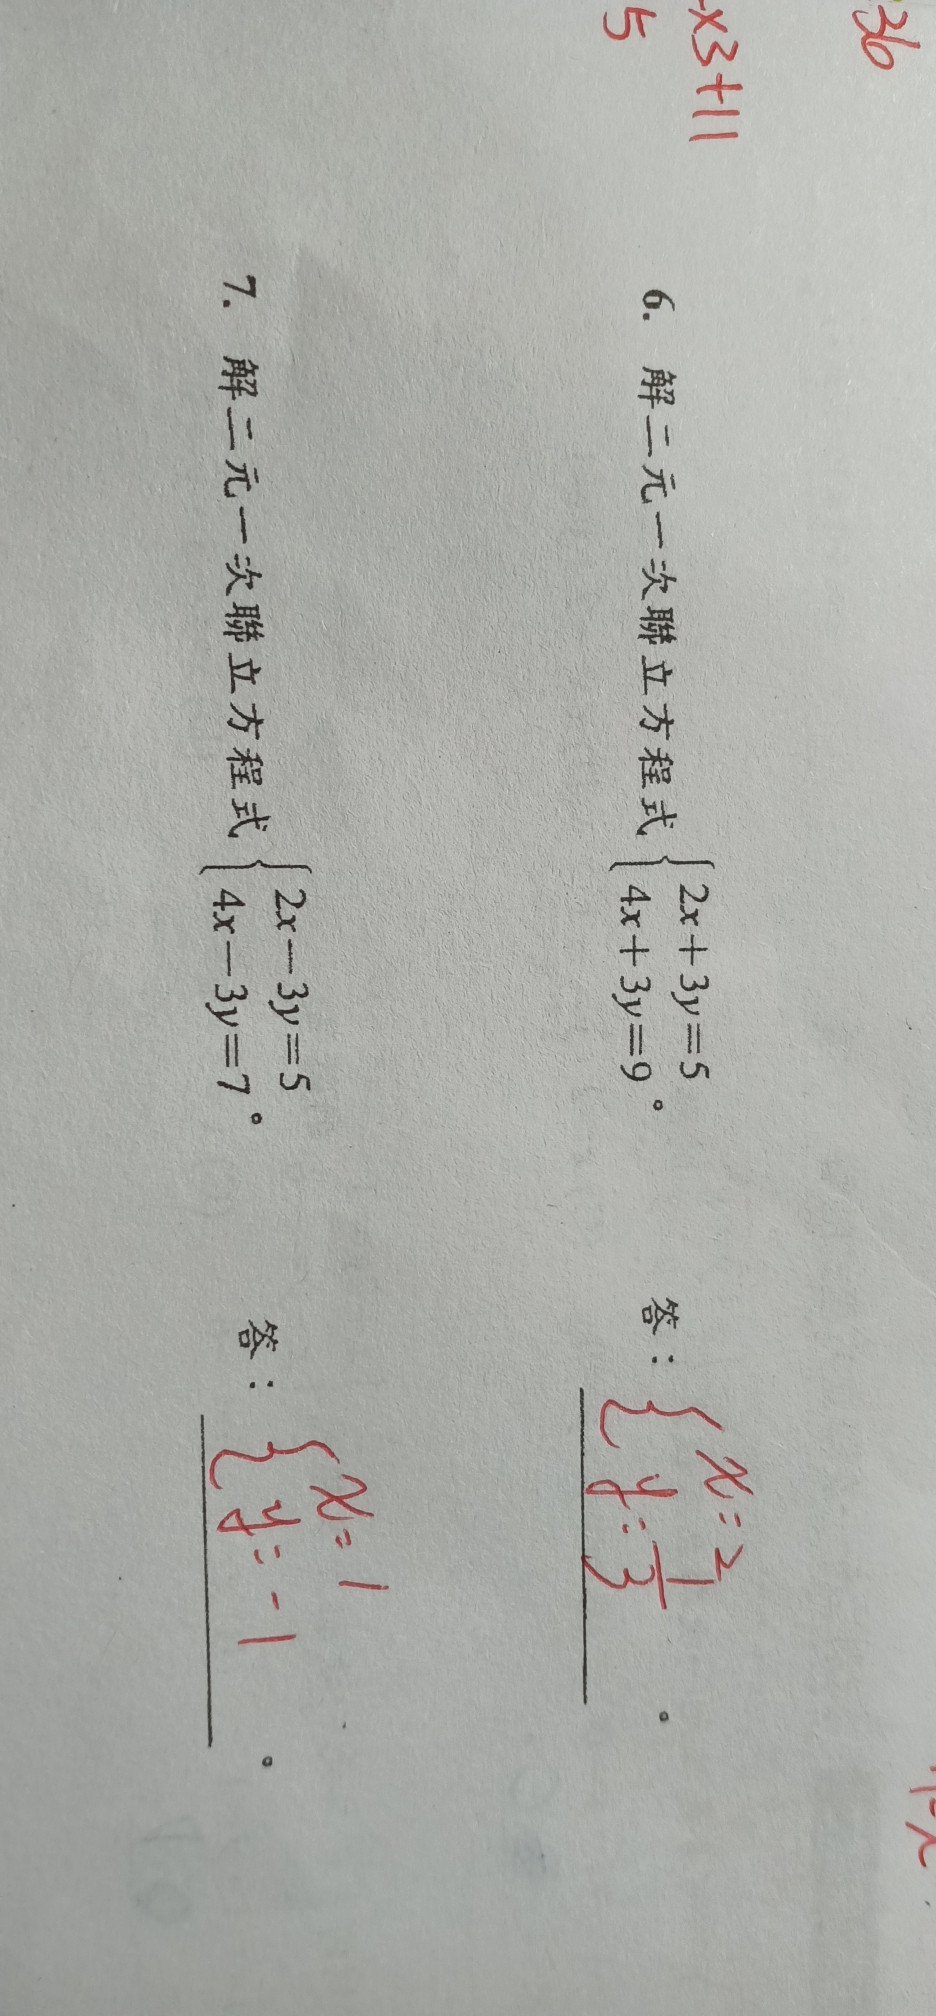 36
-x3+11
5
6. 解二元一次聯立方程式{2x+3y=5
4x+3y=9。
答：{x=2
y=1/3。
7. 解二元一次聯立方程式{2x－3y=5
4x－3y=7。
答：{x=1
y=-1。